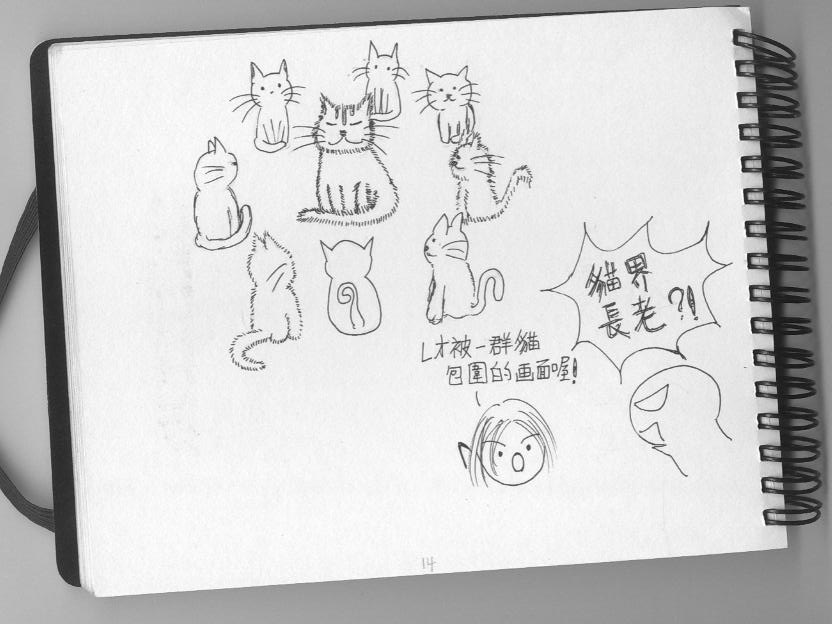 貓界
長老?!
L才被一群貓
包圍的画面喔!
14